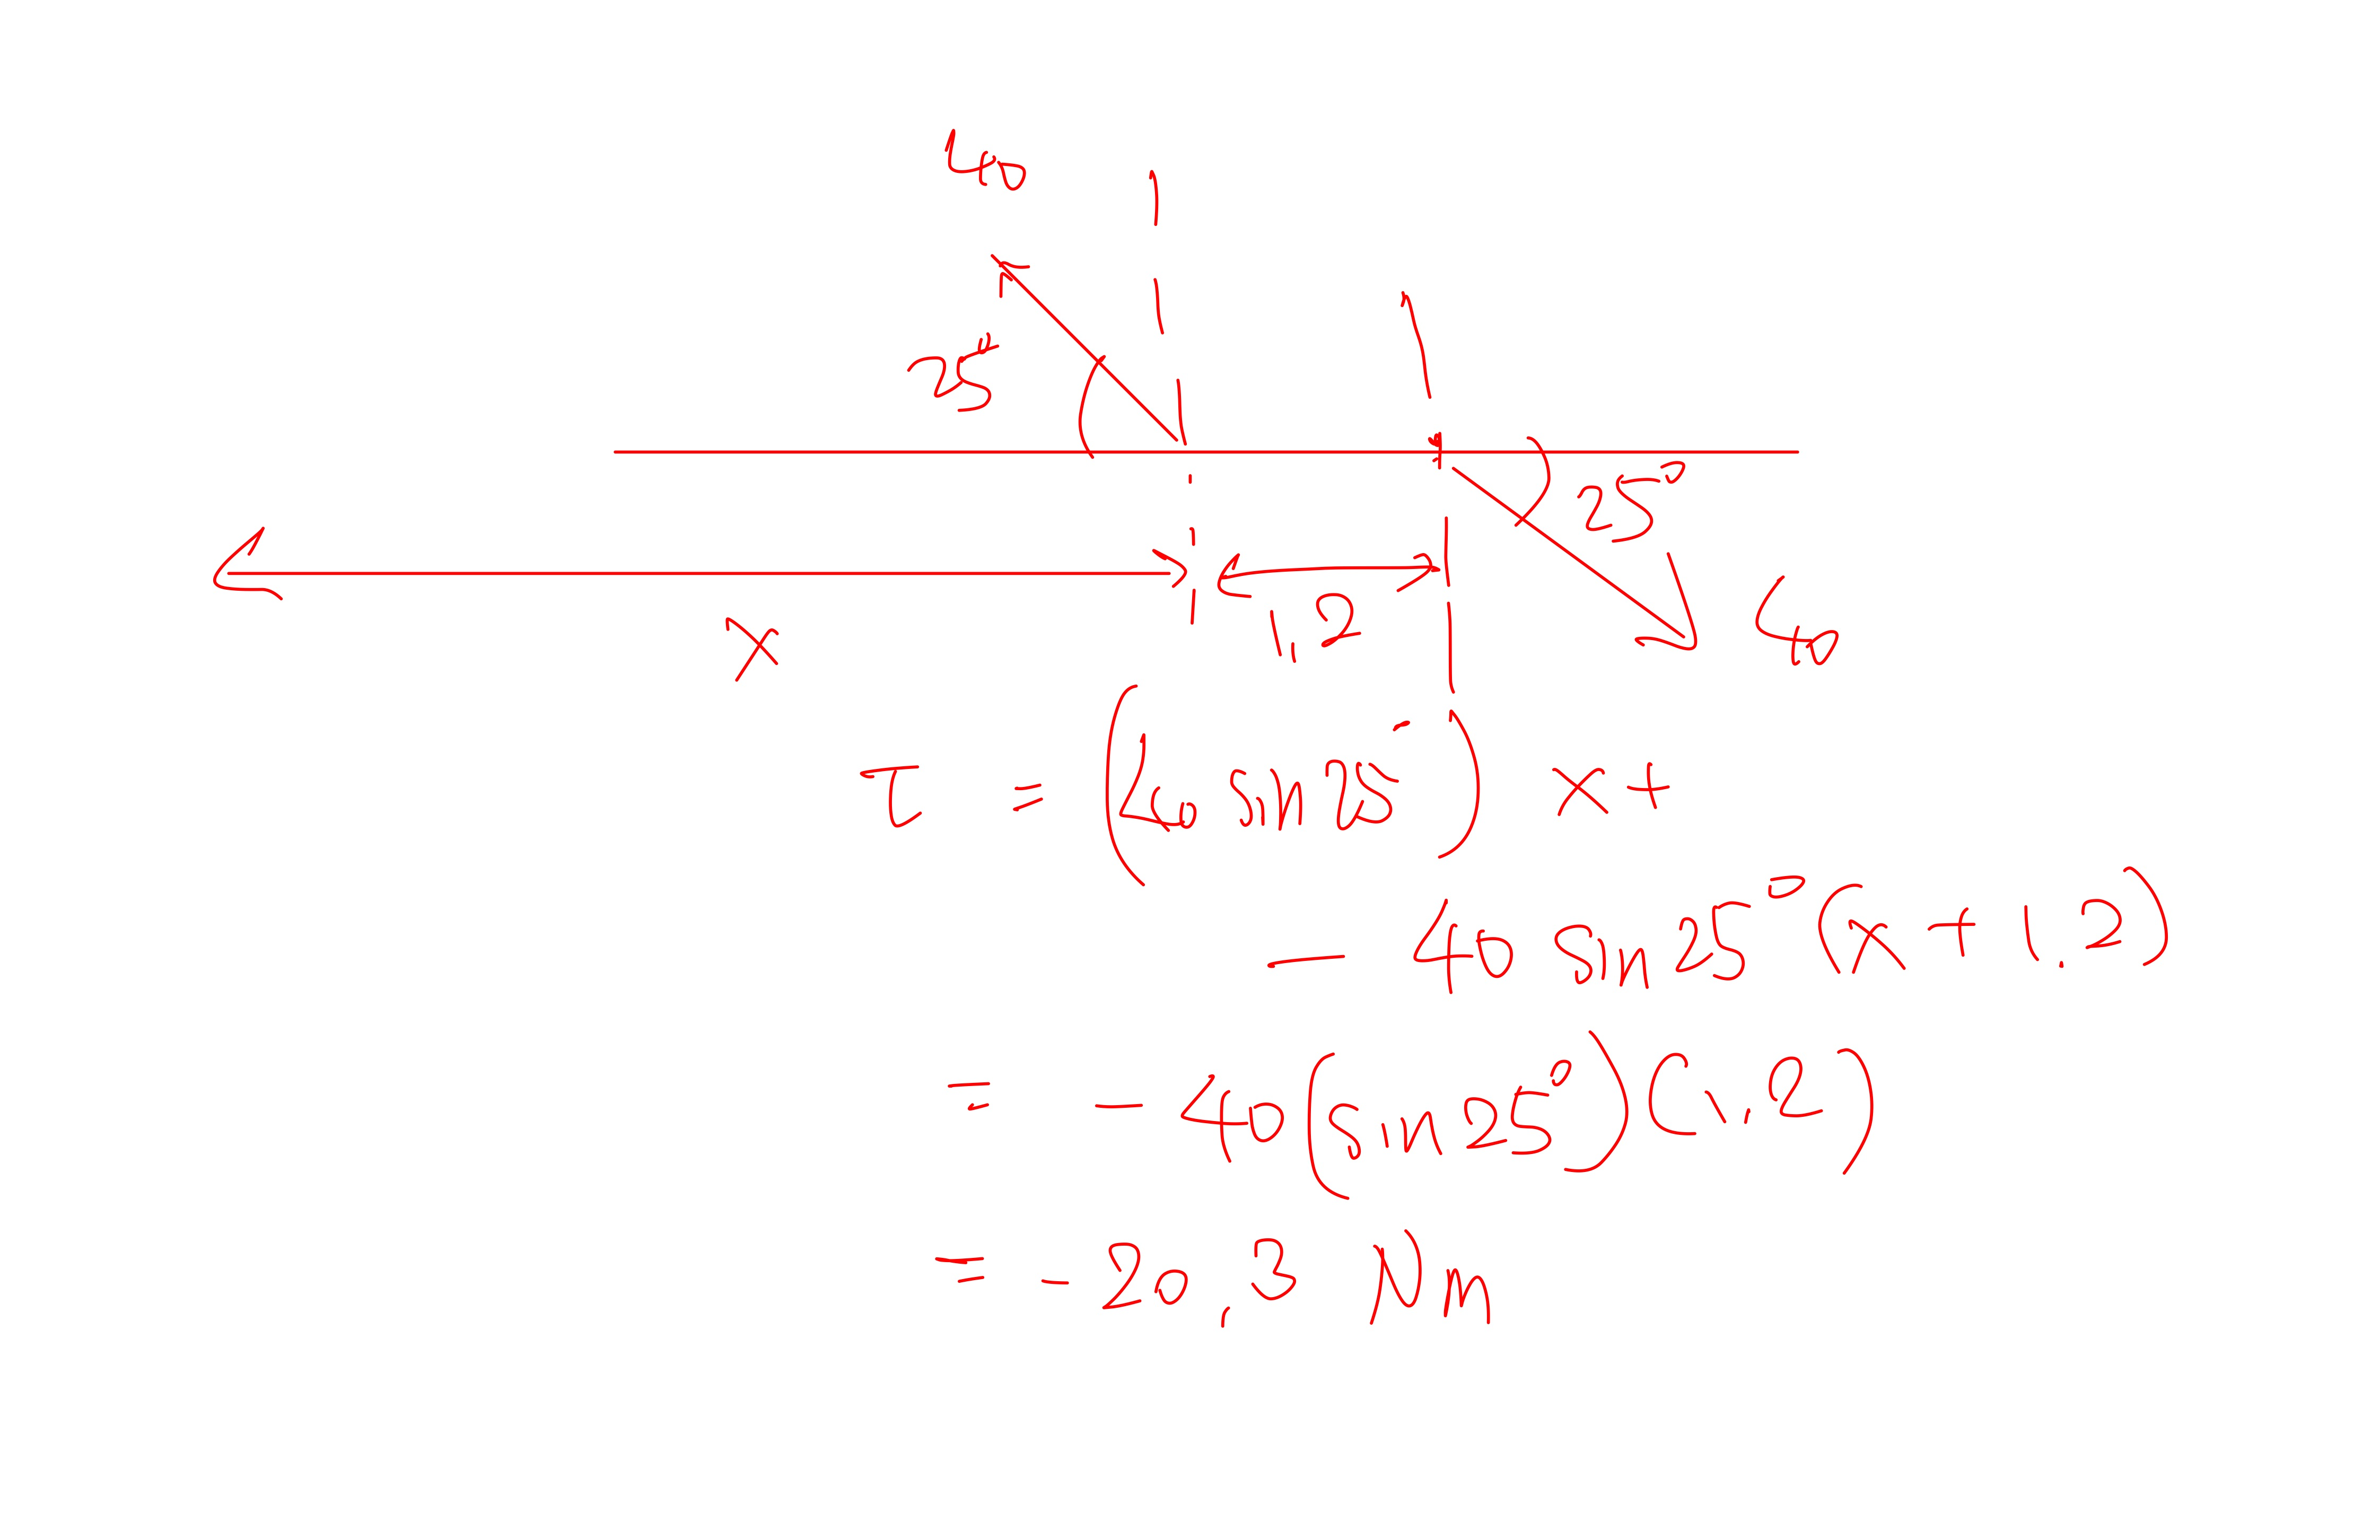 40
25°
25°
40
x
1,2
τ = (40 sin25°) x +
– 40 sin25°(x + 1.2)
= – 40(sin25°)(1.2)
= – 20,3 Nm